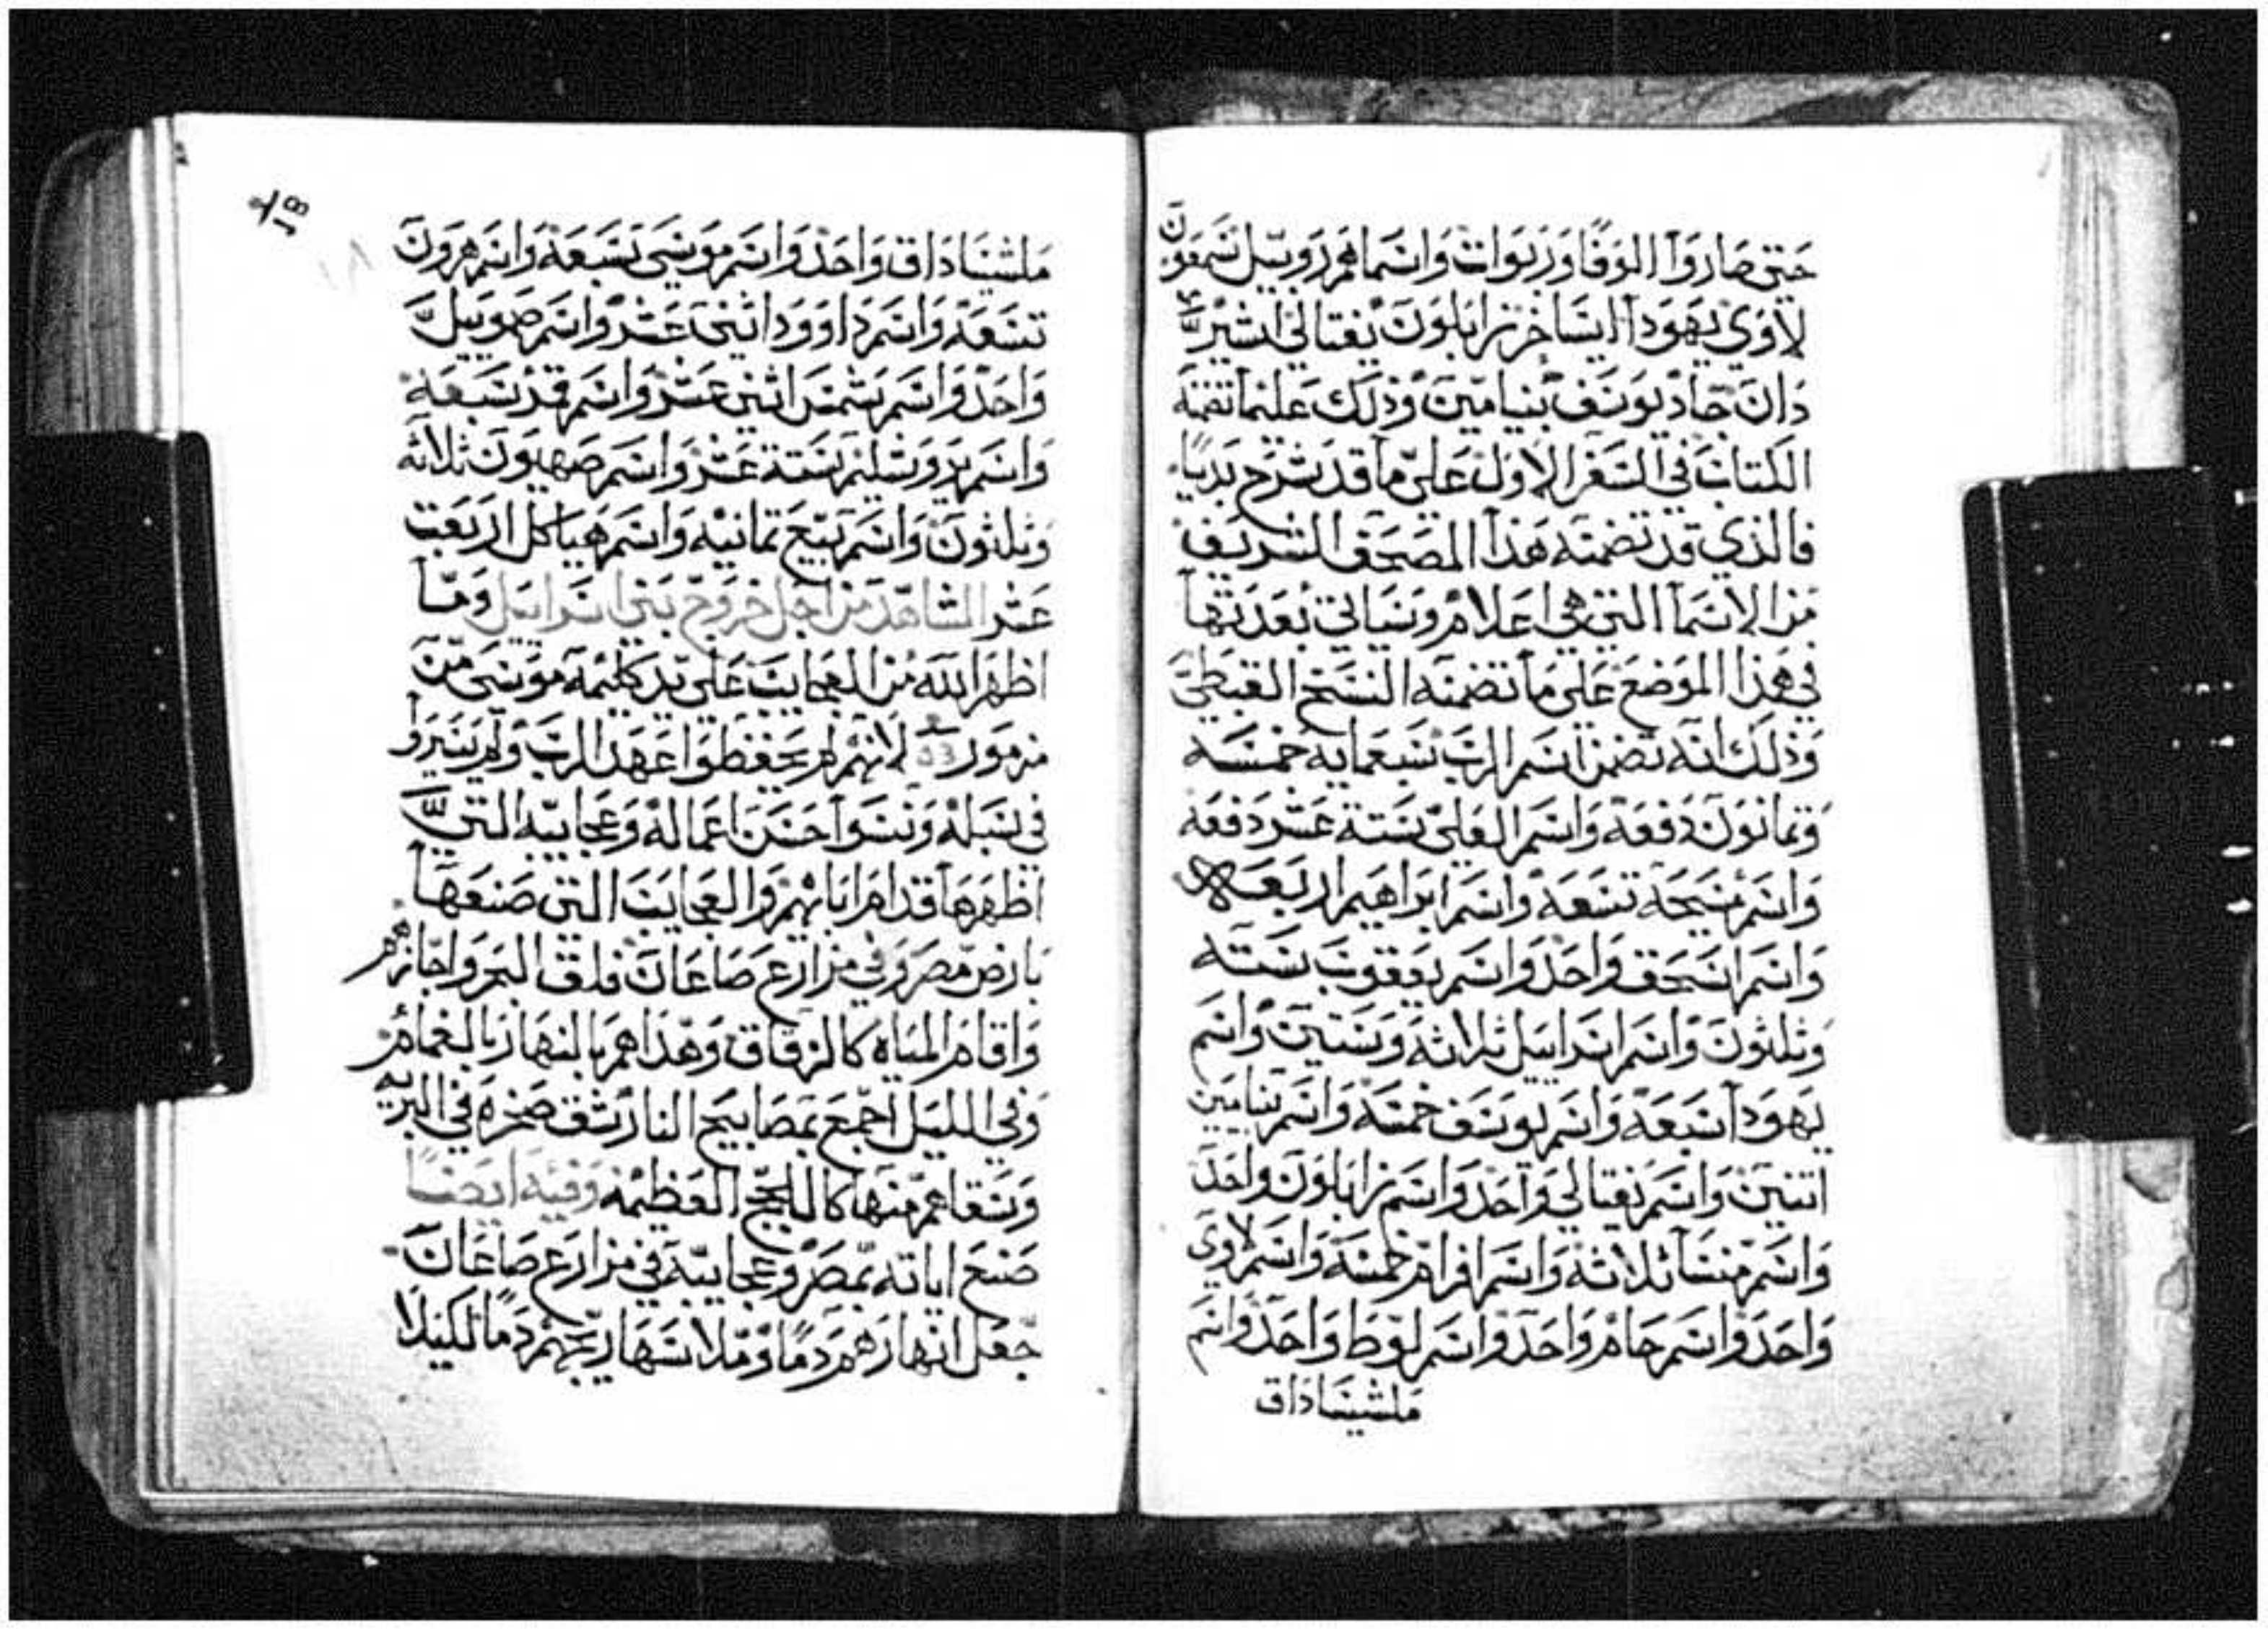 حتى صاروا الوفًا وربوات واسماهم روبيل شمعون
لاوي يهودا ايساخر زابلون نفتالي اشير
دان جاد يوسف بنيامين وذلك علىما تضمنه
الكتاب في السفر الاول على ما قد شرح بديا
فالذي قد تضمنه هذا المصحف الشريف
من الاسما التي هي اعلام وسياتي بعدتها
في هذا الموضع على ما تضمنه النسخ القبطي
وذلك انه تضمن اسم الرب سبعمايه خمسه
وثمانون دفعه واسم العلي ستة عشر دفعه
واسم مسيحه تسعه واسم ابراهيم اربعه
واسم اسحق واحد واسم يعقوب سته
وثلثون واسم اسراييل ثلاثه وستين واسم
يهودا سبعه واسم يوسف خمسه واسم بنيامين
اتنين واسم نفتالي واحد واسم زابلون واحد
واسم منسا ثلاثه واسم افرام خمسه واسم لاوي
واحد واسم حام واحد واسم لوط واحد واسم
ملشيساداق
18
١٨
ملشيساداق واحد واسم موسى تسعه واسم هرون
تسعه واسم داوود اثنى عشر واسم صمويل
واحد واسم شمس اثنى عشر واسم قدس سبعه
واسم يروشليم ستة عشر واسم صهيون ثلاثه
وثلثون واسم بيع ثمانيه واسم هياكل اربعت
عشر الشاهد من اجل خروج بني اسراييل وما
اظهر الله من العجايب على يد كليمه موسى من
مزمور لانهم لم يحفظوا عهد الرب ولم يسيروا
في سبله ونسوا حسن اعماله وعجايبه التي
اظهرها قدام ابايهم والعجايب التي صنعها
بارض مصر وفي مزارع صاعان فلق البحر واجازهم
واقام المياه كالزقاق وهداهم بالنهار بالغمام
وفي الليل اجمع بمصابيح النار شق صخره في البريه
وسقاهم منها كاللجج العظيمه وفيه ايضا
صنع اياته بمصر وعجايبه في مزارع صاعان
جعل انهارهم دمًا وملا سهاريجهم دمًا لكيلا